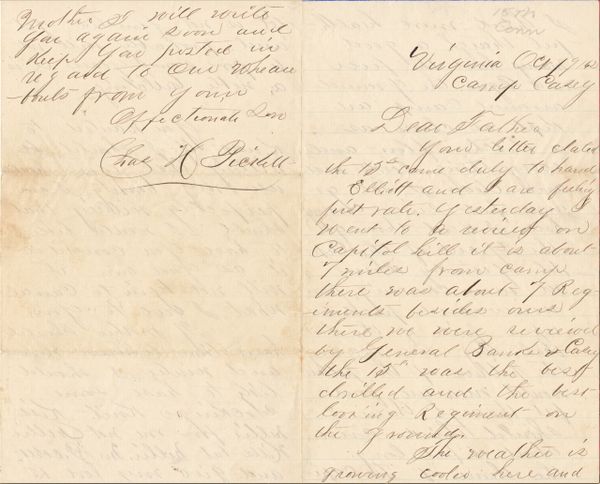 Mother I will write
you again soon and
keep you posted in
regard to our wherea-
bouts from your
Affectionate Son
Chas H Pickett
15th
Conn
Virginia Oct 19/62
Camp Casey
Dear Father
Your letter dated
the 15th came duly to hand
Elliott and I are feeling
first rate. Yesterday I
went to a review on
Capitol hill it is about
7 miles from camp
there was about 7 Reg-
iments besides ours
there we were reviewed
by General Banks & Casey
the 15th was the best
drilled and the best
looking Regiment on
the ground.
The weather is
growing cooler here and